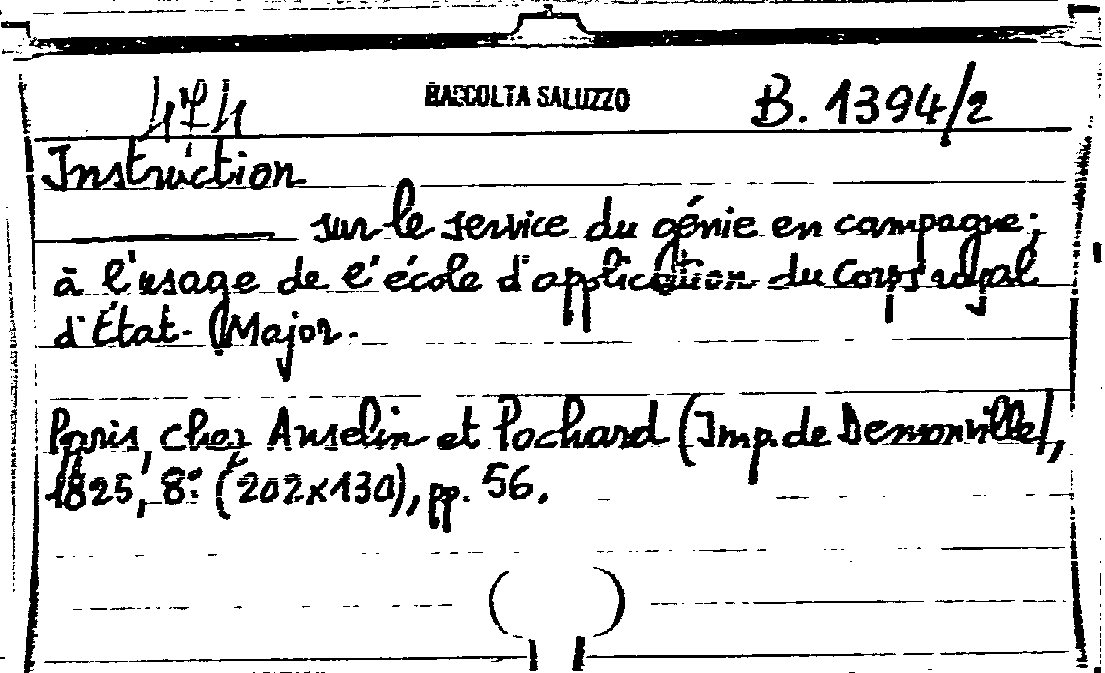 474 RACCOLTA SALUZZO B. 1394/2
Instruction
sur le service du génie en campagne;
à l'usage de l'école d'application du Corps royal
d'État-Major.
Paris, chez Anselin et Pochard (Imp. de Demonville),
1825, 8° (202x130), pp. 56.